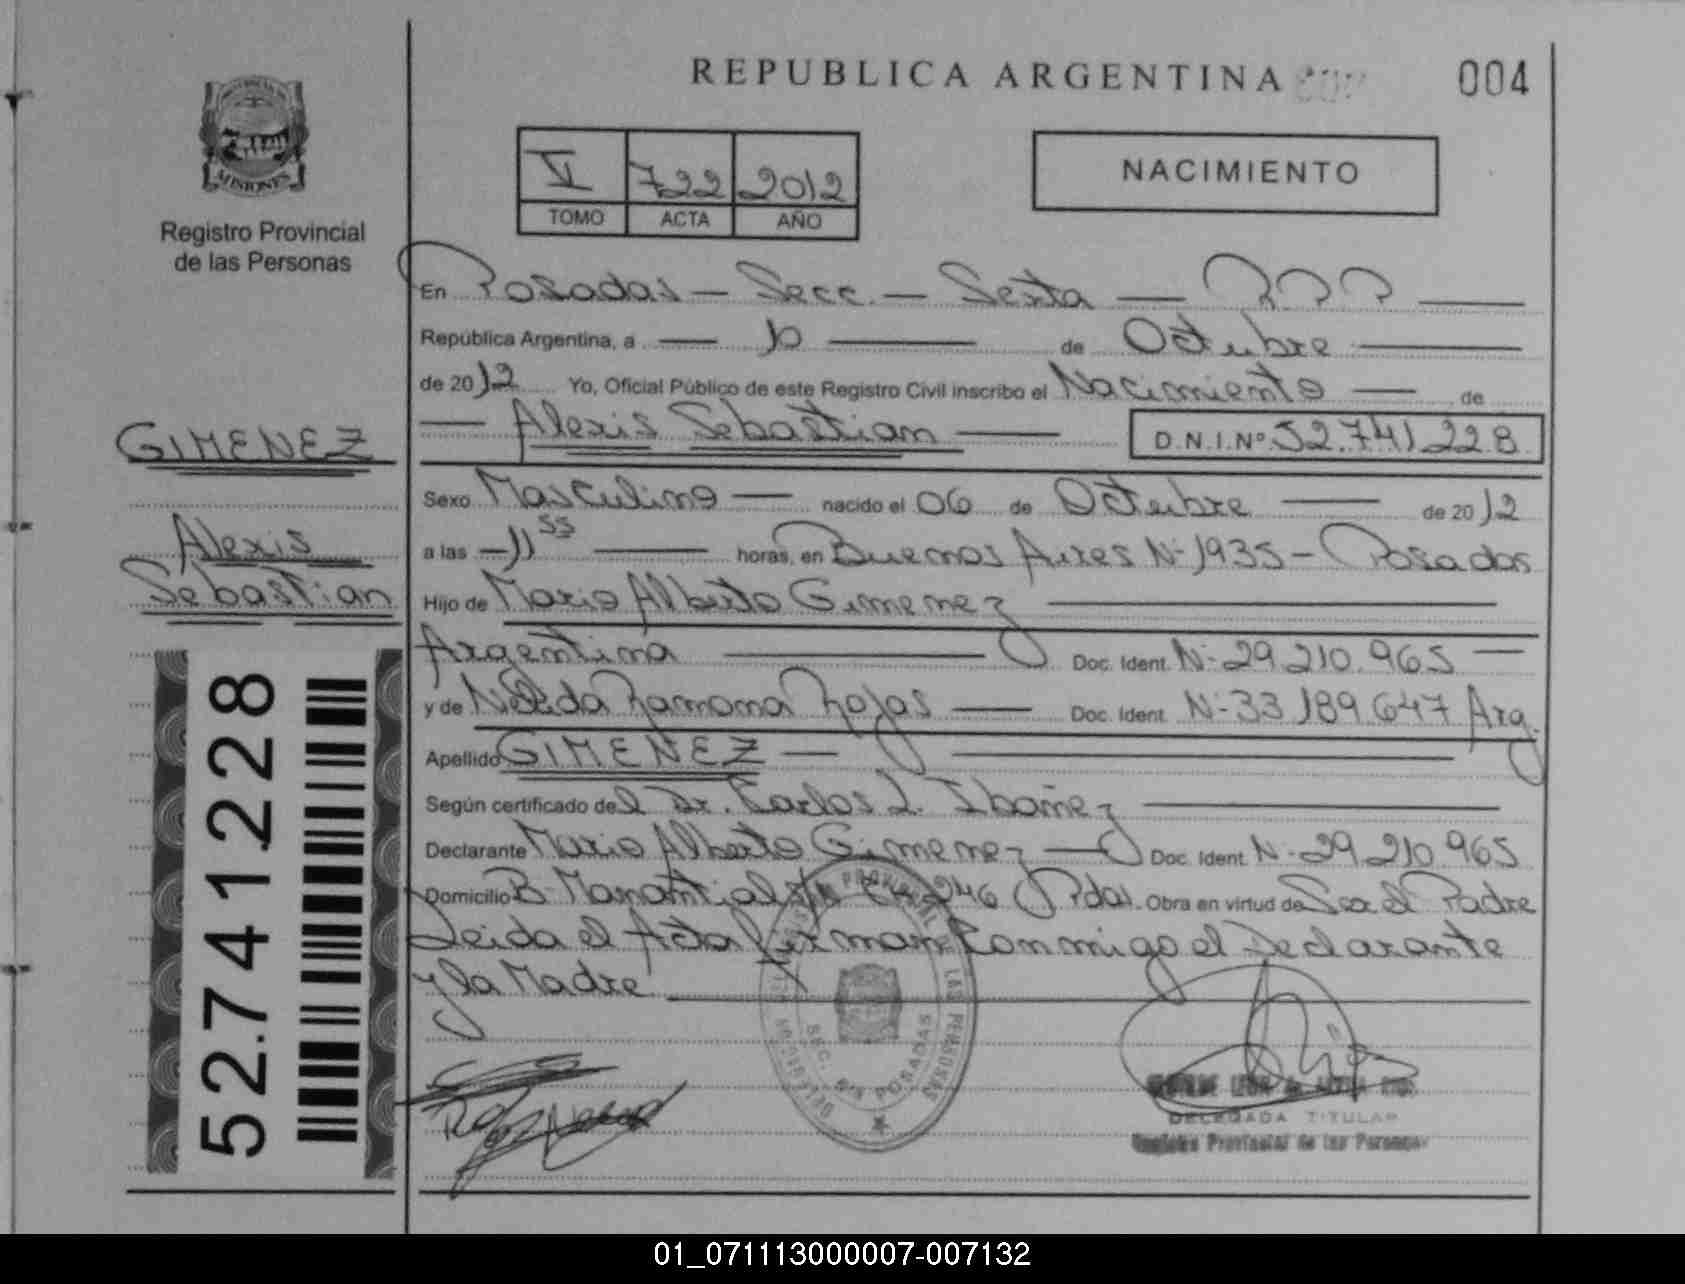 REPUBLICA ARGENTINA
004
PROVINCIA DE
MISIONES
Registro Provincial
de las Personas
VI 722 2012
TOMO ACTA AÑO
NACIMIENTO
En Posadas — Secc. — Sexta —
República Argentina, a — 10 — de Octubre —
de 2012 Yo, Oficial Público de este Registro Civil inscribo el Nacimiento — de
— Alexis Sebastian — D.N.I.Nº 52.741.228
GIMENEZ
Alexis
Sebastian
52.741.228
Sexo Masculino — nacido el 06 de Octubre — de 2012
a las — 11 55 — horas, en Buenos Aires Nº 1935 - Posadas
Hijo de Mario Alberto Gimenez —
Argentina — Doc. Ident. Nº 29.210.965 —
y de Nelida Ramona Rojas — Doc. Ident. Nº 33.189.647 Arg.
Apellido GIMENEZ —
Según certificado del Dr. Carlos L. Ibañez —
Declarante Mario Alberto Gimenez — Doc. Ident. Nº 29.210.965
Domicilio Bº Manantial s/n 246 Pdas. Obra en virtud de Ser el Padre
Leida el Acta firman Conmigo el Declarante
y la Madre —
SEC. 6ta POSADAS
DELEGADA TITULAR
Registro Provincial de las Personas
01_071113000007-007132